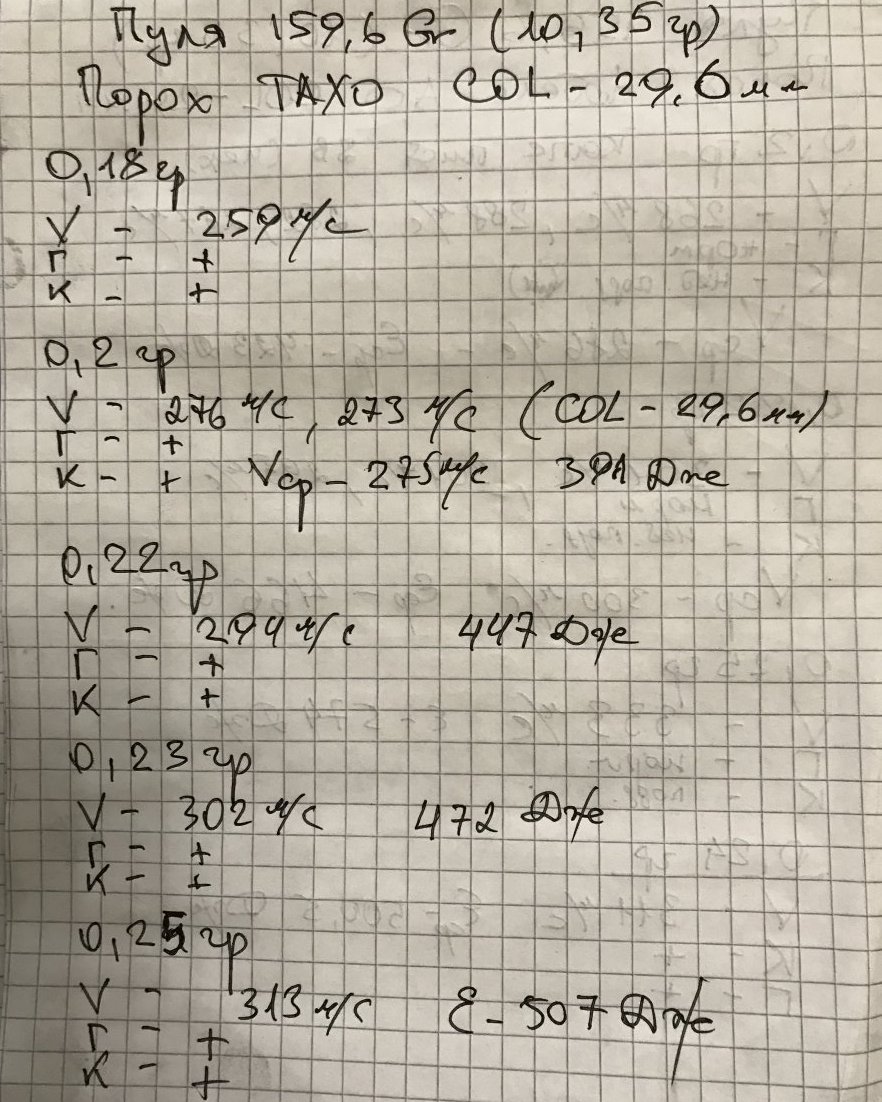 Пуля 159,6 Gr (10,35гр)
Порох ТАХО COL - 29,6 мм
0,18гр
V - 259 м/с
Г - +
К - +
0,2 гр
V - 276 м/с, 273 м/с (COL - 29,6мм)
Г - +
К - + Vср - 275м/с 391 Дже
0,22гр
V - 294 м/с 447 Дже
Г - +
К - +
0,23 гр
V - 302 м/с 472 Дже
Г - +
К - +
0,25 гр
V - 313 м/с E - 507 Дже
Г - +
К - +